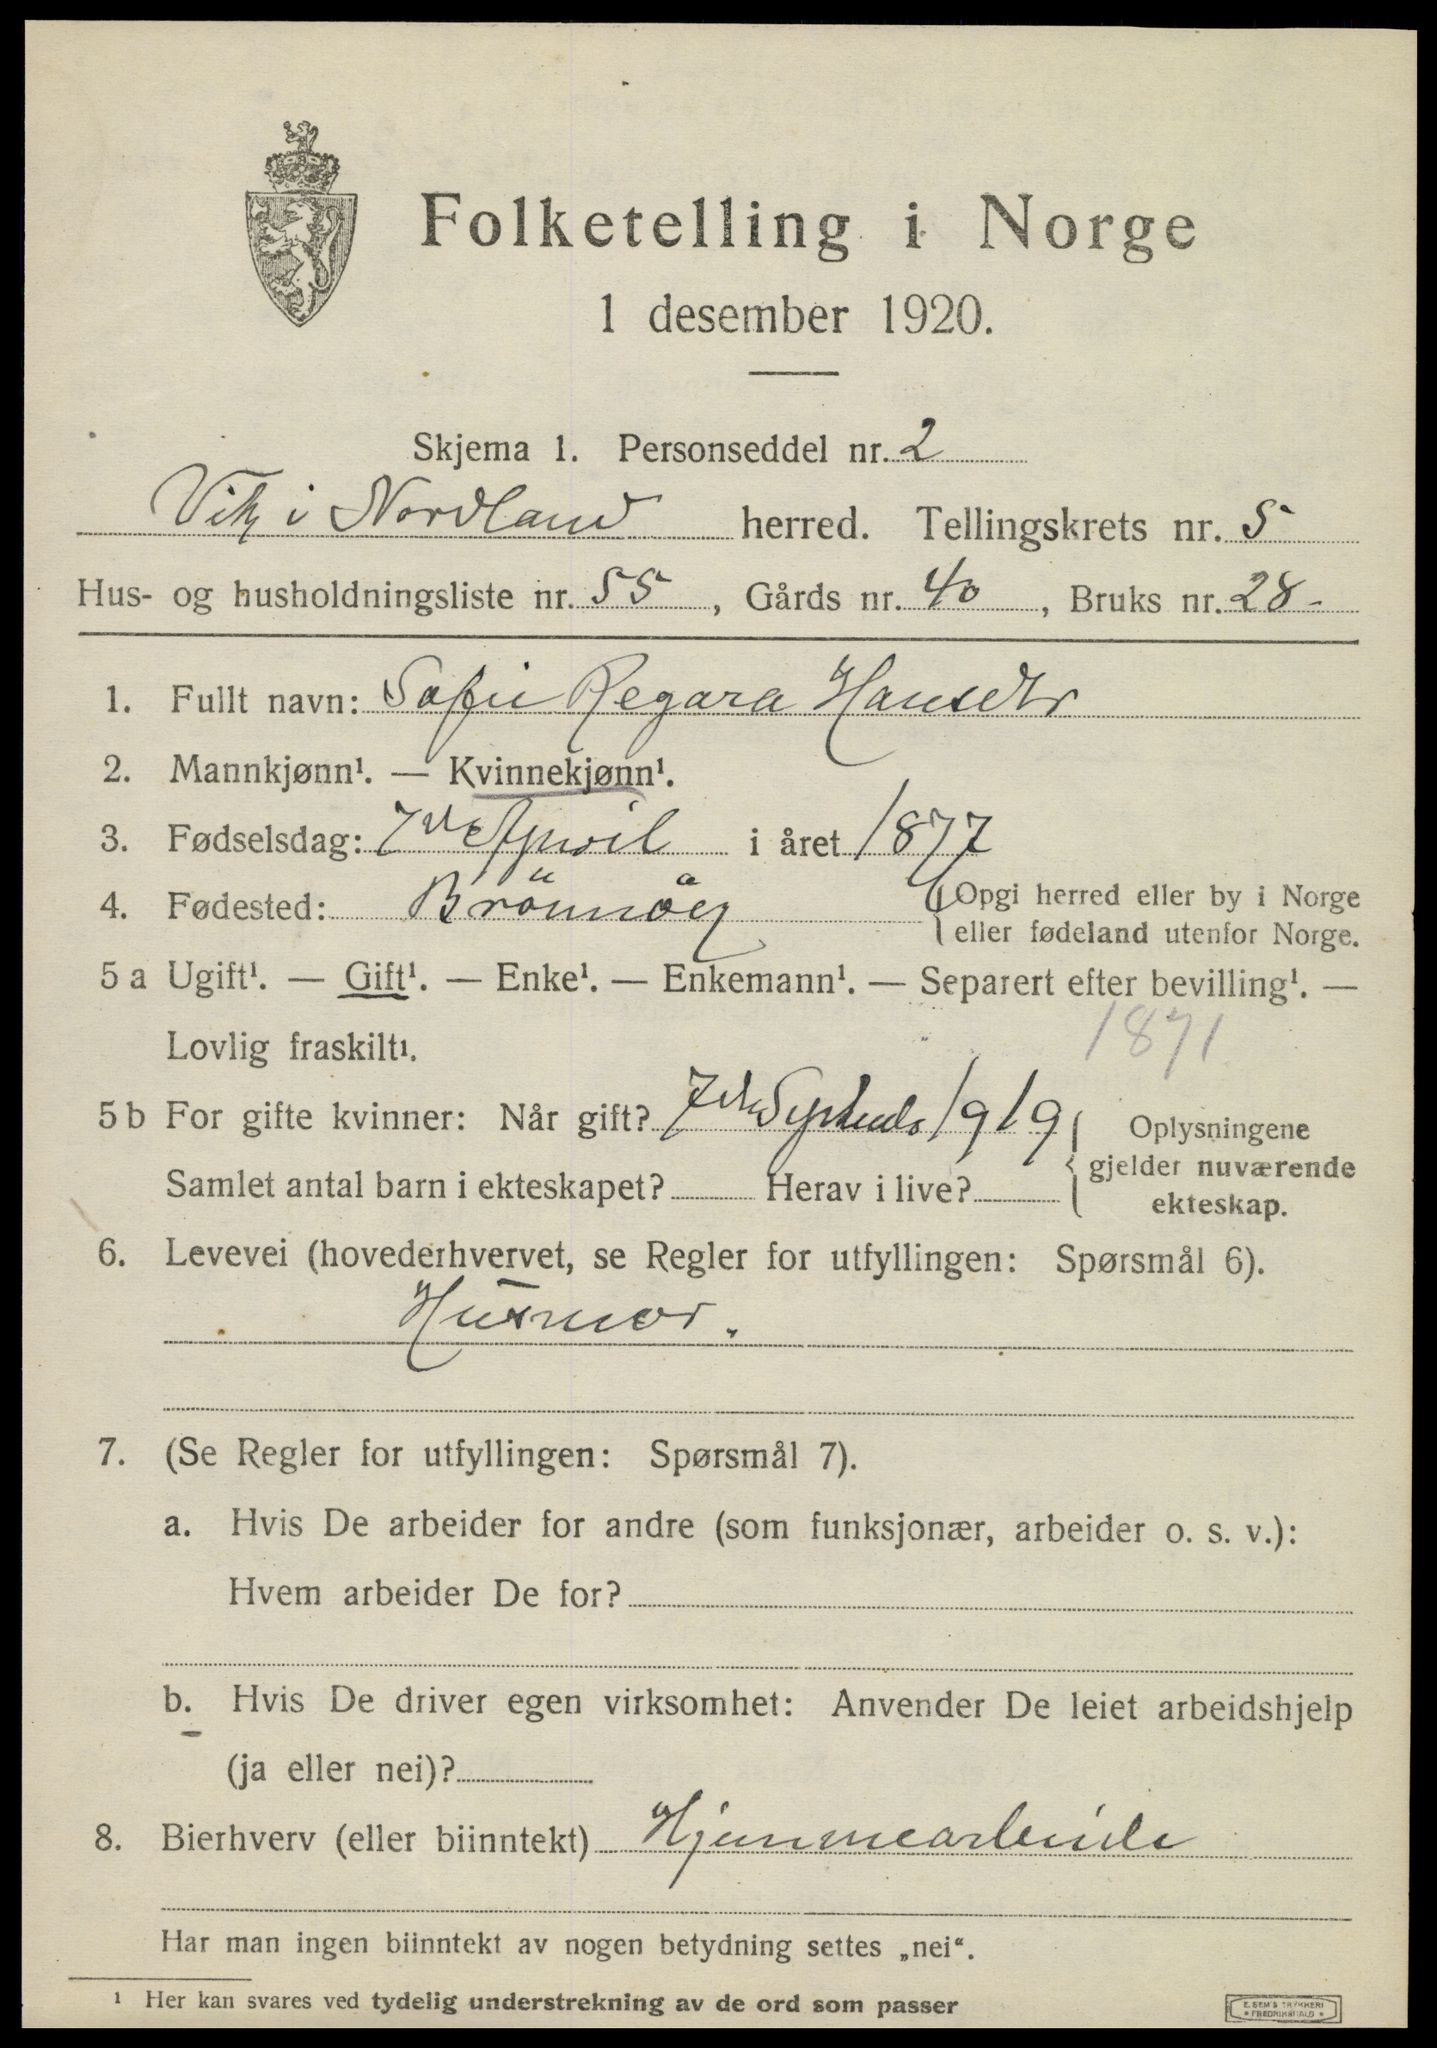 Folketelling i Norge
1 desember 1920.
Skjema 1. Personseddel nr. 2
Vik i Nordland herred. Tellingskrets nr. 5
Hus- og husholdningsliste nr. 55, Gårds nr. 40, Bruks nr. 28-
1. Fullt navn: Sofie Regara Hansdtr
2. Mannkjønn¹. — Kvinnekjønn¹.
3. Fødselsdag: 7de April i året 1877
4. Fødested: Brönnöy {Opgi herred eller by i Norge
eller fødeland utenfor Norge.
5 a Ugift¹. — Gift¹. — Enke¹. — Enkemann¹. — Separert efter bevilling¹. —
Lovlig fraskilt¹. 1871
5 b For gifte kvinner: Når gift? 7de 1919 { Oplysningene
gjelder nuværende
ekteskap.
Samlet antal barn i ekteskapet? Herav i live?
6. Levevei (hovederhvervet, se Regler for utfyllingen: Spørsmål 6).
Husmor.
7. (Se Regler for utfyllingen: Spørsmål 7).
a. Hvis De arbeider for andre (som funksjonær, arbeider o. s. v.):
Hvem arbeider De for?
b. Hvis De driver egen virksomhet: Anvender De leiet arbeidshjelp
(ja eller nei)?
8. Bierhverv (eller biinntekt) Hjemmearbeide
Har man ingen biinntekt av nogen betydning settes „nei“.
¹ Her kan svares ved tydelig understrekning av de ord som passer
E. SEM'S TRYKKERI
* FREDRIKSHALD *